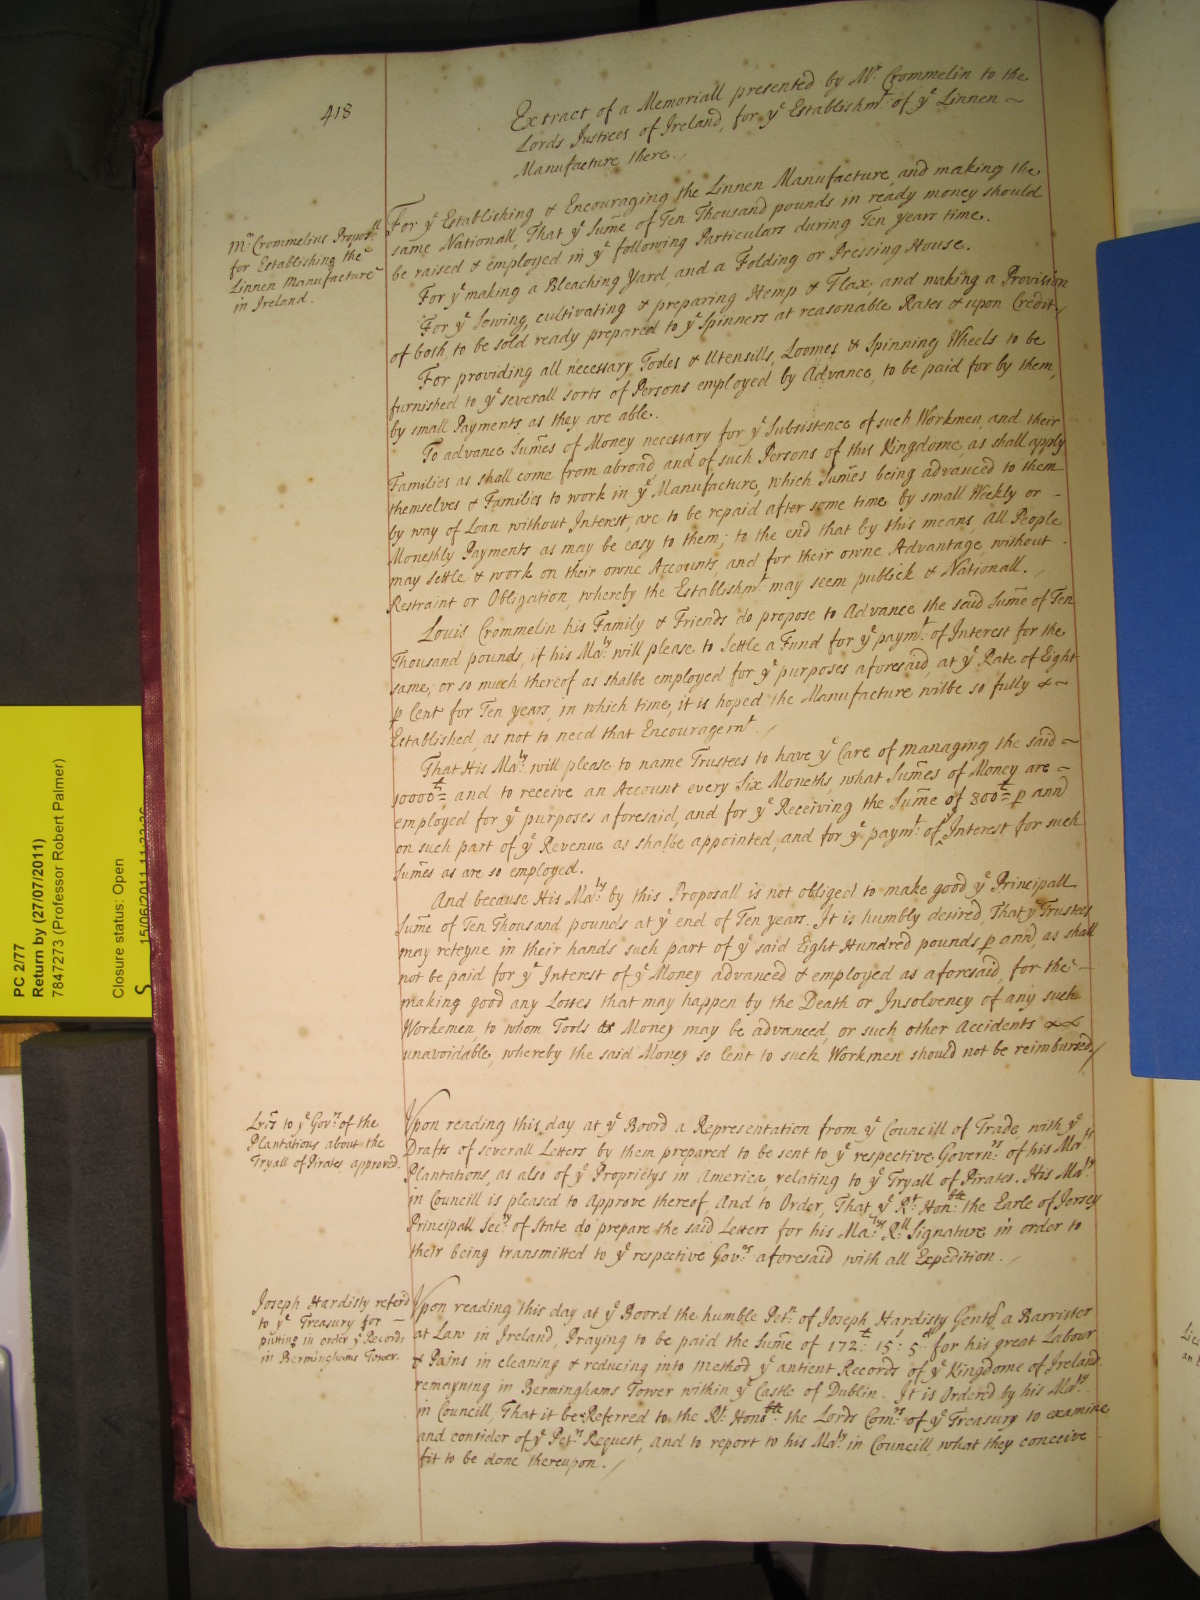 418
Extract of a Memoriall presented by Mr. Crommelin to the
Lords Justices of Ireland, for ye Establishmt. of ye Linnen ~
Manufacture there./
Mr. Crommelins Proposll
for Establishing the
Linnen Manufacture
in Ireland.
For ye Establishing & Encouraging the Linnen Manufacture, and making the
same Nationall, That ye Sume of Ten Thousand pounds in ready money should
be raised & employed in ye following Particulars during Ten years time.
For ye making a Bleaching Yard, and a Folding or Pressing House.
For ye Sowing, cultivating & preparing Hemp & Flax, and making a Provision
of both, to be sold ready prepared to ye Spinners at reasonable Rates & upon Credit./
For providing all necessary Tooles & Utensills, Loomes & Spinning Wheels to be
furnished to ye severall sorts of Persons employed by Advance, to be paid for by them,
by small Payments as they are able.
To advance Sumes of Money necessary for ye Subsistence of such Workmen, and their
Families as shall come from abroad, and of such Persons of this Kingdome, as shall apply
themselves & Families to work in ye Manufacture, which Sumes being advanced to them
by way of Loan without Interest, are to be repaid after some time by small Weekly or -
Monethly Payments as may be easy to them; to the end that by this means, all People
may settle & work on their owne Accounts, and for their owne Advantage, without
Restraint or Obligation, whereby the Establishmt. may seem publick & Nationall./
Louis Crommelin his Family & Friends do propose to Advance the said Sume of Ten
Thousand pounds, if his Maty. will please to settle a Fund for ye paymt. of Interest for the
same; or so much thereof as shalbe employed for ye purposes aforesaid, at ye Rate of Eight
p Cent for Ten years, in which time, it is hoped the Manufacture wilbe so fully
Established, as not to need that Encouragemt./
That His Maty. will please to name Trustees to have ye Care of managing the said ~
10000li=, and to receive an Account every Six Moneths, what Sumes of Money are -
employed for ye purposes aforesaid, and for ye Receiving the Sume of 800li= p ann
on such part of ye Revenue as shalbe appointed, and for ye paymt. of ye Interest for such
Sumes as are so employed.
And because His Maty. by this Proposall is not obliged to make good ye Principall
Sume of Ten Thousand pounds at ye end of Ten years, It is humbly desired That ye Trustees
may reteyne in their hands such part of ye said Eight Hundred pounds p ann, as shall
not be paid for ye Interest of ye Money advanced & employed as aforesaid, for the -
making good any Losses that may happen by the Death or Insolvency of any such
Workemen, to whom Tools or Money may be advanced, or such other Accidents
unavoidable, whereby the said Money so lent to such Workmen should not be reimbursed/
Lres to ye Govrs of the
Plantations about the
Tryall of Pirates approved.
Upon reading this day at ye Board a Representation from ye Councill of Trade, with ye
Drafts of severall Letters by them prepared to be sent to ye respective Governrs. of his Matys
Plantations, as also of ye Proprietys in America, relating to ye Tryall of Pirates. His Maty.
in Councill is pleased to Approve thereof, And to Order, That ye Rt. Honble. the Earle of Jersey
Principall Secry of State do prepare the said Letters for his Matys Rll Signature in order to
their being transmitted to ye respective Govrs. aforesaid with all Expedition./
Joseph Hardisty referd
to ye Treasury for -
puting in order ye Records
in Berminghams Tower.
Upon reading this day at ye Board the humble Petn. of Joseph Hardisty Gentl a Barrister
at Law in Ireland, Praying to be paid the Sume of 172li: 15s: 5d for his great Labour
& Pains in cleaning & reducing into Method ye antient Records of ye Kingdome of Ireland
remayning in Berminghams Tower within ye Castle of Dublin. It is Ordered by his Maty.
in Councill, That it be Referred to the Rt. Honoble. the Lords Comrs. of ye Treasury to examine
and consider of ye Petrs Request, and to report to his Maty. in Councill, what they conceive
fit to be done thereupon./
PC 2/77
Return by (27/07/2011)
7847273 (Professor Robert Palmer)
Closure status: Open
15/06/2011